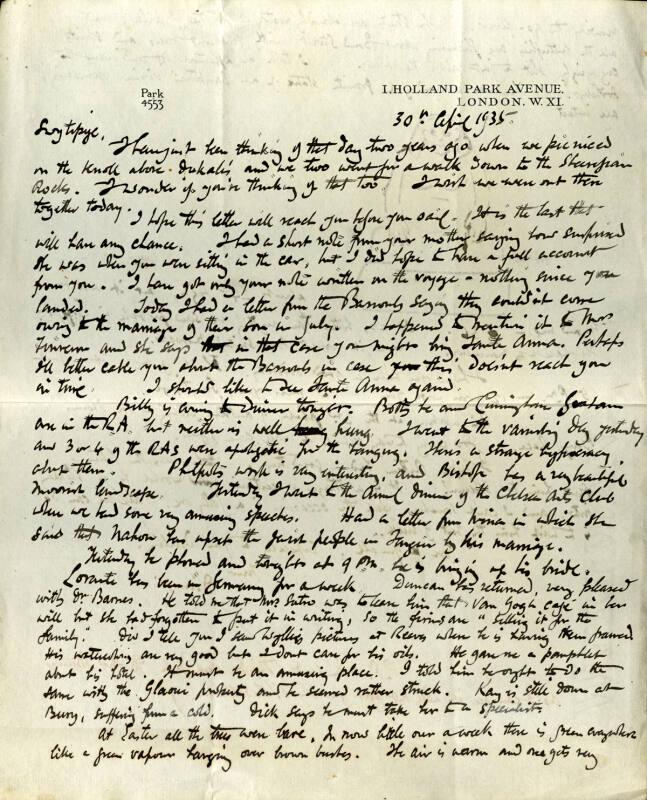 Park
4553
1, HOLLAND PARK AVENUE,
LONDON. W. XI.
30th April 1935.
I have just been thinking of that day two years ago when we picniced
on the knoll above and we two went for a walk down to the
Rocks. I wonder if you're thinking of that too. I wish we were out there
together today.
I hope this letter will reach you before you sail. It is the last that
will have any chance. I had a short note from your mother saying how surprised
she was when you were sitting in the car, but I did hope to have a full account
from you. I have got only your note written on the voyage – nothing since you
landed. Today I had a letter from the saying they couldn't come
owing to the marriage of their son in July. I happened to mention it to Mrs
and she says in that case you might Santa Anna. Perhaps
I'll better cable you about the in case this doesn't reach you
in time. I should like to see Santa Anna again.
Billy is coming to dinner tonight. Both he and Cunninghame Graham
are in the R.A. but neither is well hung. I went to the varnishing day yesterday
and 3 or 4 of the RAs were apologetic for the hanging. There's a strange hypocrisy
about them. work is very interesting, and Bishop has a very beautiful
landscape. Yesterday I went to the annual dinner of the Chelsea Arts Club
when we had some very amusing speeches. Had a letter from in which she
said that has upset the people in Tangier by his marriage.
Yesterday he phoned and tonight at 9 P.M. he is bringing up his bride.
has been in Germany for a week. Duncan has returned, very pleased
with Dr. Barnes. He told me that Mrs Sutro was to leave him that Van Gogh café in her
will but she had forgotten to put it in writing, so the firm are "selling it for the
family". Did I tell you I saw Wyllie's pictures at Reeves when he is having them framed
His watercolours are very good but I don't care for his oils. He gave me a pamphlet
about his hotel. It must be an amazing place. I told him he ought to do the
same with the Glaoui property and he seemed rather struck. Kay is still down at
Bury, suffering from a cold. Dick says he must take her to a specialist.
At Easter all the trees were bare. In now little over a week there is green everywhere
like a green vapour hanging over brown bushes. The air is warm and one gets very